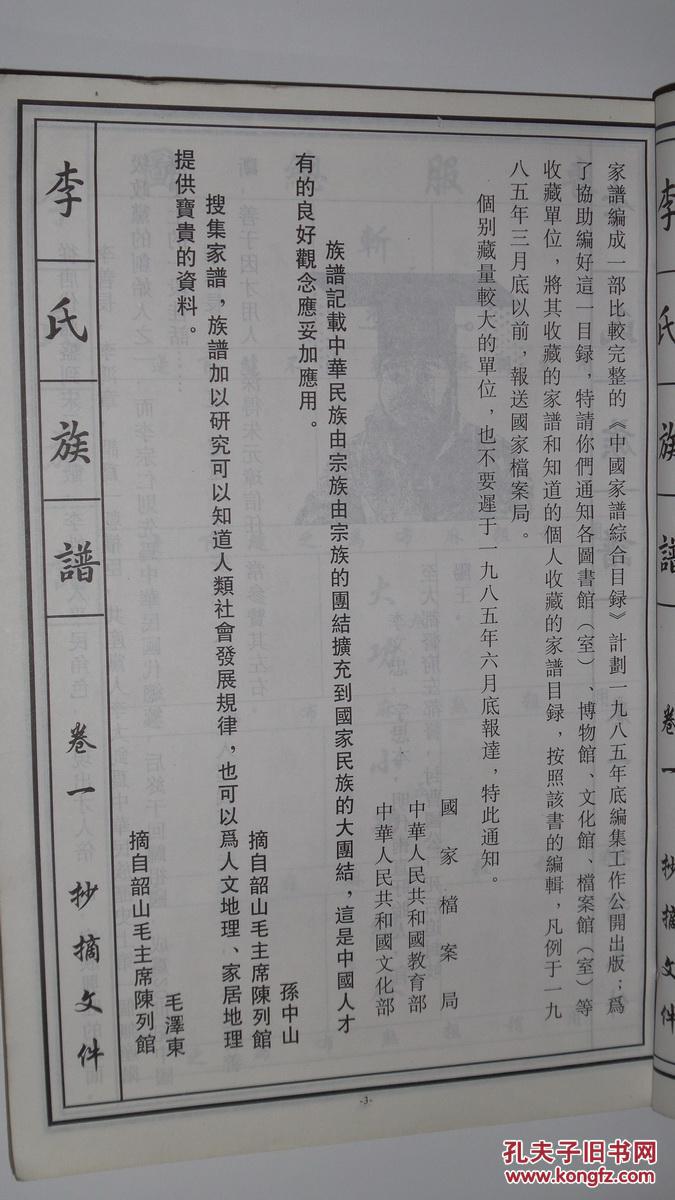 家譜編成一部比較完整的《中國家譜綜合目録》計劃一九八五年底編集工作公開出版；爲
了協助編好這一目録，特請你們通知各圖書館（室）、博物館、文化館、檔案館（室）等
收藏單位，將其收藏的家譜和知道的個人收藏的家譜目録，按照該書的編輯，凡例于一九
八五年三月底以前，報送國家檔案局。
個别藏量較大的單位，也不要遲于一九八五年六月底報達，特此通知。
國家檔案局
中華人民共和國教育部
中華人民共和國文化部
族譜記載中華民族由宗族由宗族的團結擴充到國家民族的大團結，這是中國人才
有的良好觀念應妥加應用。
孫中山
摘自韶山毛主席陳列館
搜集家譜，族譜加以研究可以知道人類社會發展規律，也可以爲人文地理、家居地理
提供寶貴的資料。
毛澤東
摘自韶山毛主席陳列館
李氏族譜 卷一 抄摘文件
-3-
李氏族譜 卷一 抄摘文件
孔夫子旧书网
www.kongfz.com